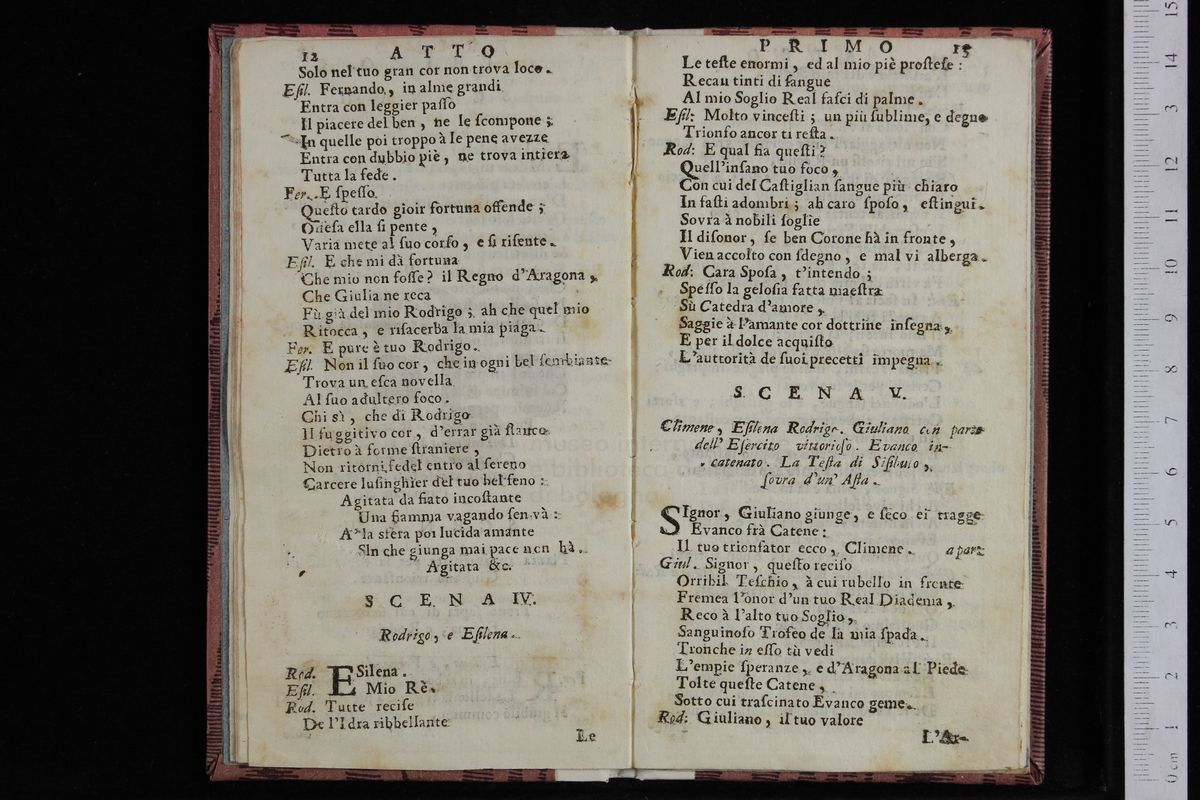 12 ATTO
Solo nel tuo gran cor non trova loco.
Esil. Fernando, in alme grandi
Entra con leggier passo
Il piacere del ben, ne le scompone;
In quelle poi troppo à le pene avezze
Entra con dubbio piè, ne trova intiera
Tutta la fede.
Fer. E spesso
Questo tardo gioir fortuna offende;
Offesa ella si pente,
Varia mete al suo corso, e si risente.
Esil. E che mi dà fortuna
Che mio non fosse? il Regno d'Aragona,
Che Giulia ne reca
Fù già del mio Rodrigo; ah che quel mio
Ritocca, e risacerba la mia piaga.
Fer. E pure è tuo Rodrigo.
Esil. Non il suo cor, che in ogni bel sembiante
Trova un esca novella
Al suo adultero foco.
Chi sì, che di Rodrigo
Il fuggitivo cor, d'errar già stanco
Dietro à forme straniere,
Non ritorni fedel entro al sereno
Carcere lusinghier del tuo bel seno:
Agitata da fiato incostante
Una fiamma vagando sen và:
A la sfera poi lucida amante
Sin che giunga mai pace non hà.
Agitata &c.
SCENA IV.
Rodrigo, e Esilena.
Rod. ESilena.
Esil. Mio Rè.
Rod. Tutte recise
De l'Idra ribbellante
Le
PRIMO 15
Le teste enormi, ed al mio piè prostese:
Recan tinti di sangue
Al mio Soglio Real fasci di palme.
Esil: Molto vincesti; un più sublime, e degno
Trionfo ancor ti resta.
Rod: E qual fia questi?
Quell'insano tuo foco,
Con cui del Castiglian sangue più chiaro
In fasti adombri; ah caro sposo, estingui.
Sovra à nobili soglie
Il disonor, se ben Corone hà in fronte,
Vien accolto con sdegno, e mal vi alberga.
Rod: Cara Sposa, t'intendo;
Spesso la gelosia fatta maestra
Sù Catedra d'amore,
Saggie à l'amante cor dottrine insegna,
E per il dolce acquisto
L'auttorità de suoi precetti impegna.
SCENA V.
Climene, Esilena Rodrigo. Giuliano con parte
dell' Esercito vittorioso. Evanco in-
catenato. La Testa di Sisibuto,
sovra d'un' Asta.
SIgnor, Giuliano giunge, e seco ei tragge
Evanco frà Catene:
Il tuo trionfator ecco, Climene. a parte
Giul. Signor, questo reciso
Orribil Teschio, à cui rubello in fronte
Fremea l'onor d'un tuo Real Diadema,
Reco à l'alto tuo Soglio,
Sanguinoso Trofeo de la mia spada.
Tronche in esso tù vedi
L'empie speranze, e d'Aragona al Piede
Tolte queste Catene,
Sotto cui trascinato Evanco geme.
Rod: Giuliano, il tuo valore
L'Ar-